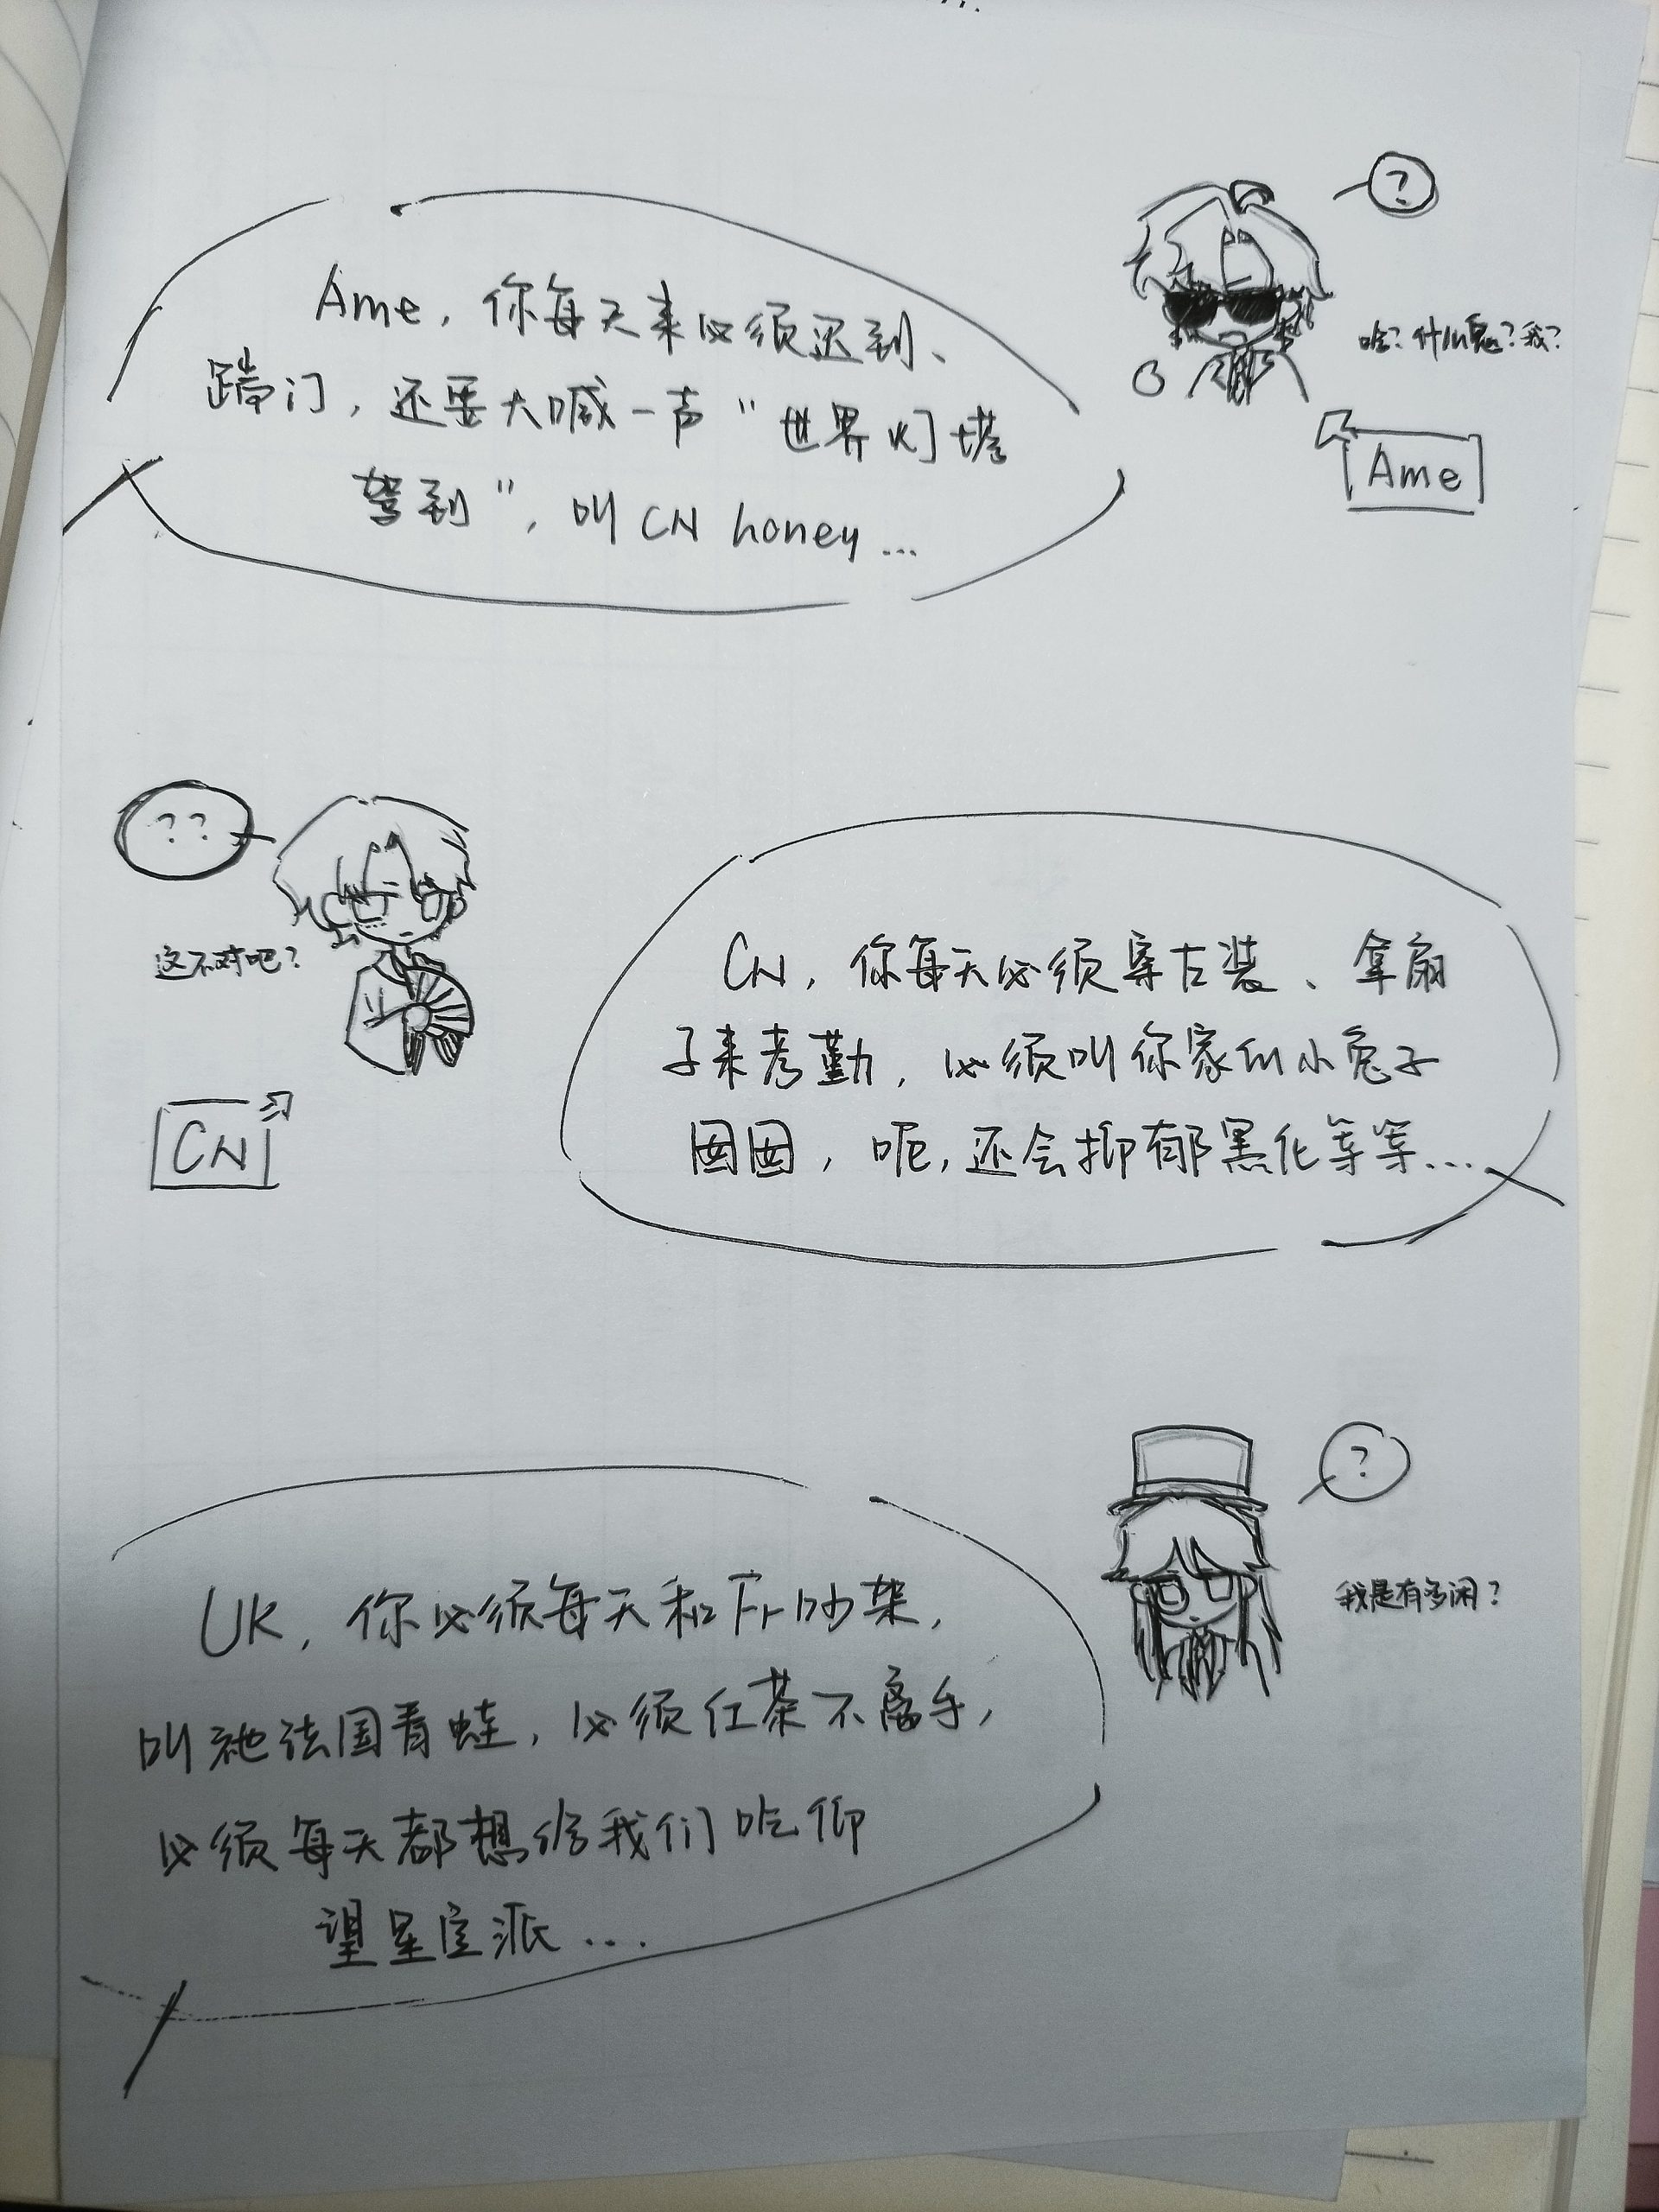 Ame，你每天来必须迟到、
踹门，还要大喊一声"世界灯塔
驾到"，叫CN honey...
?
啥？什么鬼？我？
Ame
??
这不对吧？
CN
CN，你每天必须穿古装、拿扇
子来考勤，必须叫你家似小兔子
囡囡，呃，还会抑郁黑化等等...
?
我是有多闲？
UK，你必须每天和Fr吵架，
叫祂法国青蛙，必须红茶不离手，
必须每天都想给我们吃仰
望星空派...